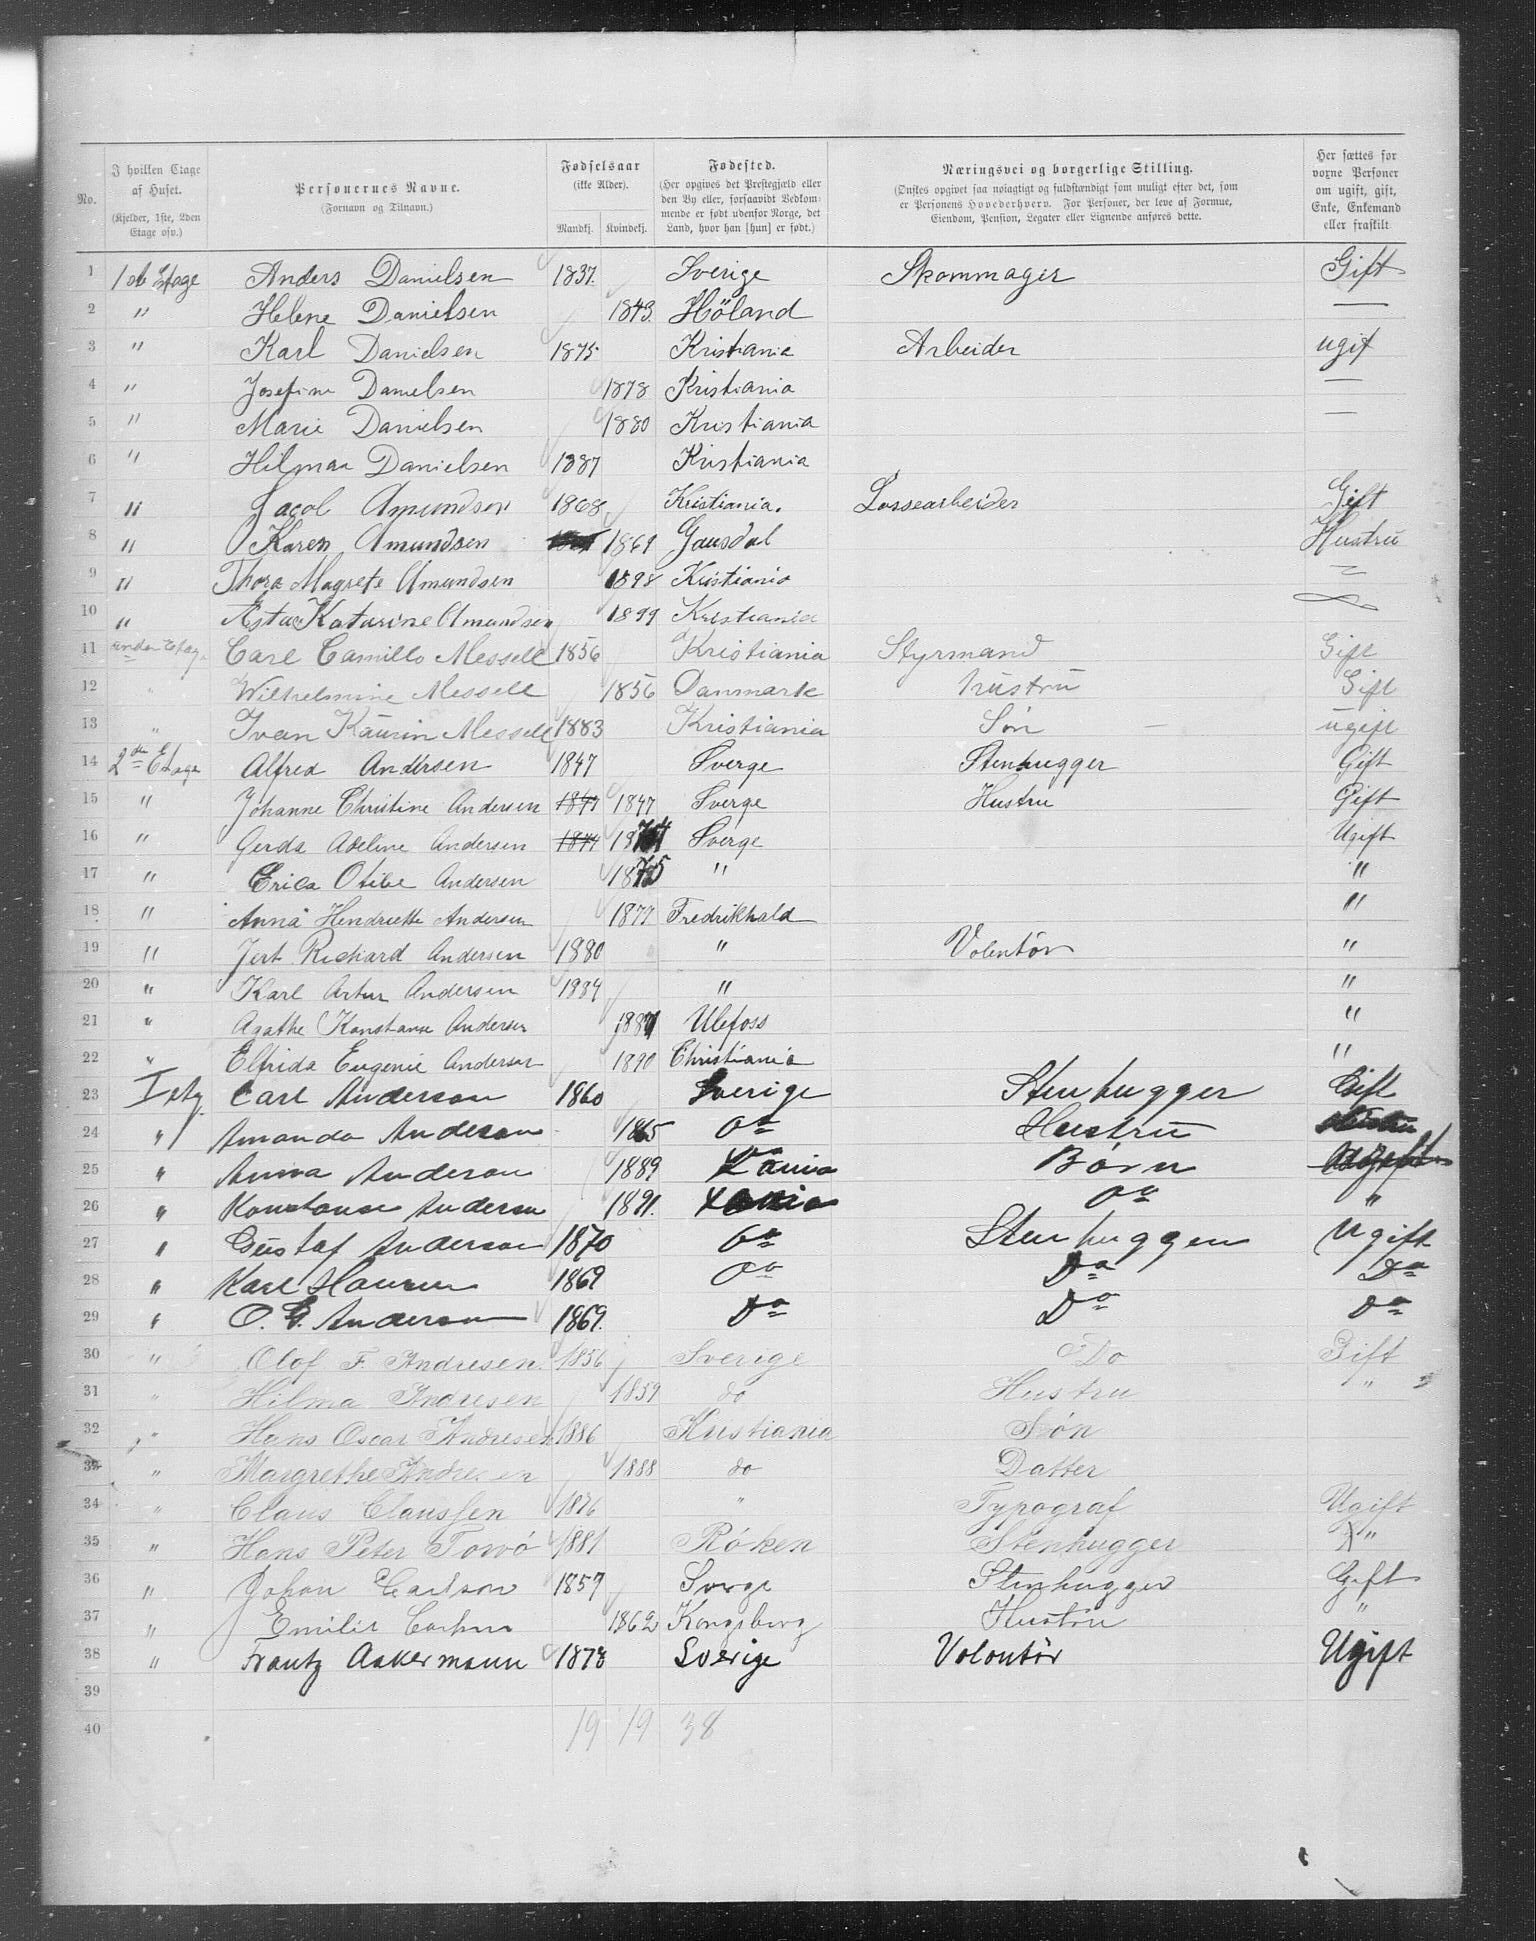 No. I hvilken Etage af Huset. (Kjelder, 1ste, 2den Etage osv.) Personernes Navne. (Fornavn og Tilnavn.) Fødselsaar (ikke Alder). Mandkj. Kvindekj. Fødested. (Her opgives det Prestegjæld eller den By eller, forsaavidt Vedkommende er født udenfor Norge, det Land, hvor han [hun] er født.) Næringsvei og borgerlige Stilling. (Ønskes opgivet saa nøiagtigt og fuldstændigt som muligt efter det, som er Personens Hovederhverv. For Personer, der leve af Formue, Eiendom, Pension, Legater eller Lignende anføres dette. Her sættes for voxne Personer om ugift, gift, Enke, Enkemand eller fraskilt
1 1st Etage Anders Danielsen 1837. Sverige Skommager Gift
2 " Helene Danielsen 1843. Höland —
3 " Karl Danielsen 1875 Kristiania Arbeider ugif
4 " Josefine Danielsen 1878 Kristiania —
5 " Marie Danielsen 1880 Kristiania —
6 " Hilmar Danielsen 1887 Kristiania
7 " Jacob Amundsen 1868 Kristiania. Lossearbeider Gift
8 " Karen Amundsen 1869 Gausdal Hustru
9 " Thora Magrete Amundsen 1898 Kristiania
10 " Katarine Amundsen 1899 Kristiania
11 anden Etage Carl Camillo Messell 1856 Kristiania Styrmand Gift
12 " Wilhelmine Messell 1856 Danmark hustru Gift
13 " Ivan Kaurin Messell 1883 Kristiania Søn — ugift
14 2den Etage Alfred Andersen 1847 Sverge Stenhugger Gift
15 " Johanne Christine Andersen 1847 1847 Sverge Hustru Gift
16 " Gerda Adeline Andersen 1874 1874 Sverge Ugift
17 " Erica Otilie Andersen 1875 " "
18 " Anna Hendriette Andersen 1877 Fredrikhald "
19 " Richard Andersen 1880 " Volentør "
20 " Karl Artur Andersen 1884 " "
21 " Agathe Konstanse Andersen 1887 Ulefoss "
22 " Elfrida Eugenie Andersen 1890 Christiania "
23 I etg. Carl Anderson 1860 Sverige Stenhugger Gift
24 " Amanda Anderson 1865 Do Hustru Hustru
25 " Anna Anderson 1889 Xania Børn
26 " Konstanse Anderson 1891. Xania Do "
27 " Gustaf Anderson 1870 Do Stenhuggen Ugift
28 " Karl Hansen 1869 Do Do Do
29 " O. G. Anderson 1869. Do Do Do
30 " Olof F. Andresen 1856 Sverige Do Gift
31 " Hilma Andresen 1859 do Hustru "
32 " Hans Oscar Andresen 1886 Kristiania Søn
33 " Margrethe Andresen 1888 do Datter
34 " Claus Claussen 1876 " Typograf Ugift
35 " Hans Peter 1881 Røken Stenhugger "
36 " Johan Carlson 1857 Sverge Stenhugger Gift
37 " Emilie 1862 Kongsberg Hustru "
38 " Frantz Aakermann 1878 Sverige Volontör Ugift
39
40 19 19 38